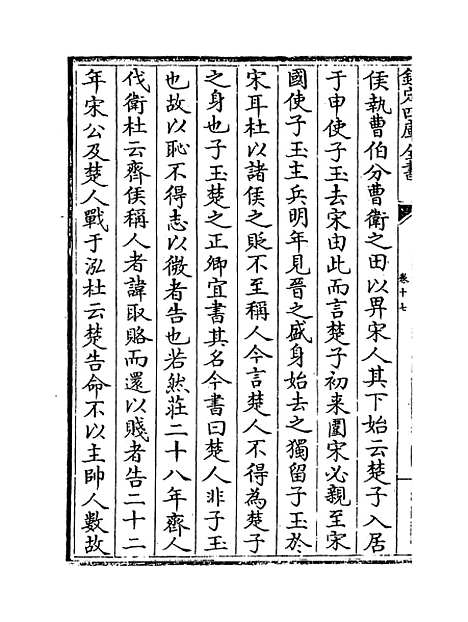 欽定四庫全書
卷十七
侯執曹伯分曹衛之田以畀宋人其下始云楚子入居
于申使子玉去宋由此而言楚子初来圍宋必親至宋
國使子玉主兵明年見晉之盛身始去之獨留子玉於
宋耳杜以諸侯之貶不至稱人今言楚人不得為楚子
之身也子玉楚之正卿宜書其名今書曰楚人非子玉
也故以恥不得志以微者告也若然莊二十八年齊人
伐衛杜云齊侯稱人者諱取賂而還以賤者告二十二
年宋公及楚人戰于泓杜云楚告命不以主帥人數故